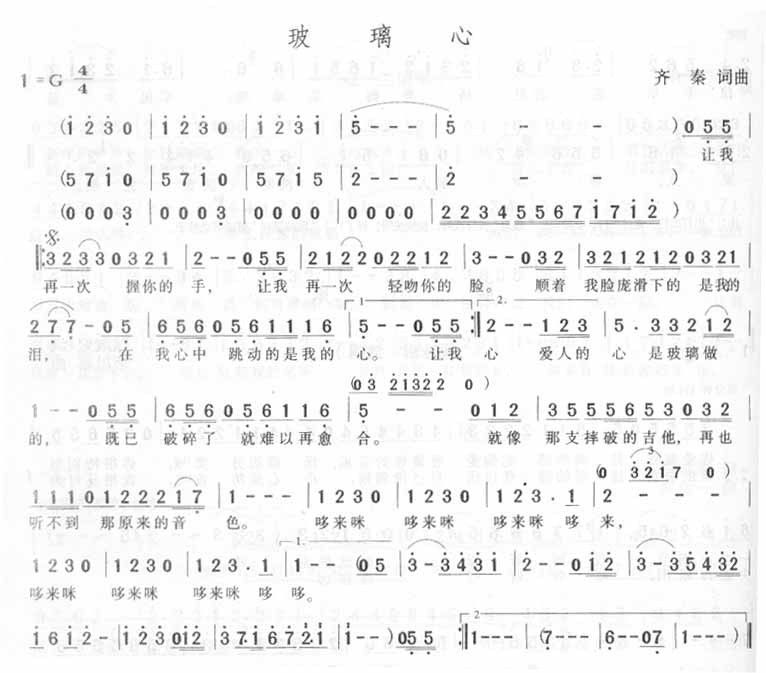 玻 璃 心
1=G 4/4
齐 秦 词曲
(i 2̇ 3̇ 0 | i 2̇ 3̇ 0 | i 2̇ 3̇ i | 5 - - - | 5 - - ) 0 5 5
让我
(5 7 i 0 | 5 7 i 0 | 5 7 i 5 | 2 - - - | 2 )
(0 0 0 3 | 0 0 0 3 | 0 0 0 0 | 0 0 0 0 | 2 2 3 4 5 5 6 7 i 7 i 2̇ )
3 2 3 3 0 3 2 1 | 2 - - 0 5 5 | 2 1 2 2 0 2 2 1 2 | 3 - - 0 3 2 | 3 2 1 2 1 2 0 3 2 1
再一次 握你的 手, 让我 再一次 轻吻你的 脸。 顺着 我脸庞滑下的 是我的
2 7 7 - 0 5 | 6 5 6 0 5 6 1 1 1 6 | 1. 5 - - 0 5 5 :‖ 2. 2 - - 1 2 3 | 5 · 3 3 2 1 2
泪, 在 我心中 跳动的是我的 心。 让我 心 爱人的 心 是玻璃做
(0 3 2 1 3 2 2 0)
1 - - 0 5 5 | 6 5 6 0 5 6 0 1 1 6 | 5 - - 0 1 2 | 3 5 5 5 6 5 3 0 3 2
的, 既已 破碎了 就难以再愈 合。 就像 那支摔破的吉他, 再也
(0 3 2 1 7 0)
1 1 1 0 1 2 2 2 1 7 | 1 - - - | 1 2 3 0 | 1 2 3 0 | 1 2 3 · 1 | 2 - - -
听不到 那原来的音 色。 哆来咪 哆来咪 哆来咪 哆 来,
1 2 3 0 | 1 2 3 0 | 1 2 3 · 1 | 1. 1 - - (0 5 | 3 - 3 4 3 1 | 2 - - 0 1 2 | 3 - 3 5 4 3 2
哆来咪 哆来咪 哆来咪 哆 哆。
1 6 1 2 - | 1 2 3 0 1 2 | 3 7 1 6 7 2 1 | 1 - - ) 0 5 5 :‖ 2. 1 - - - | (7 - - - | 6 - - 0 7 | 1 - - - )